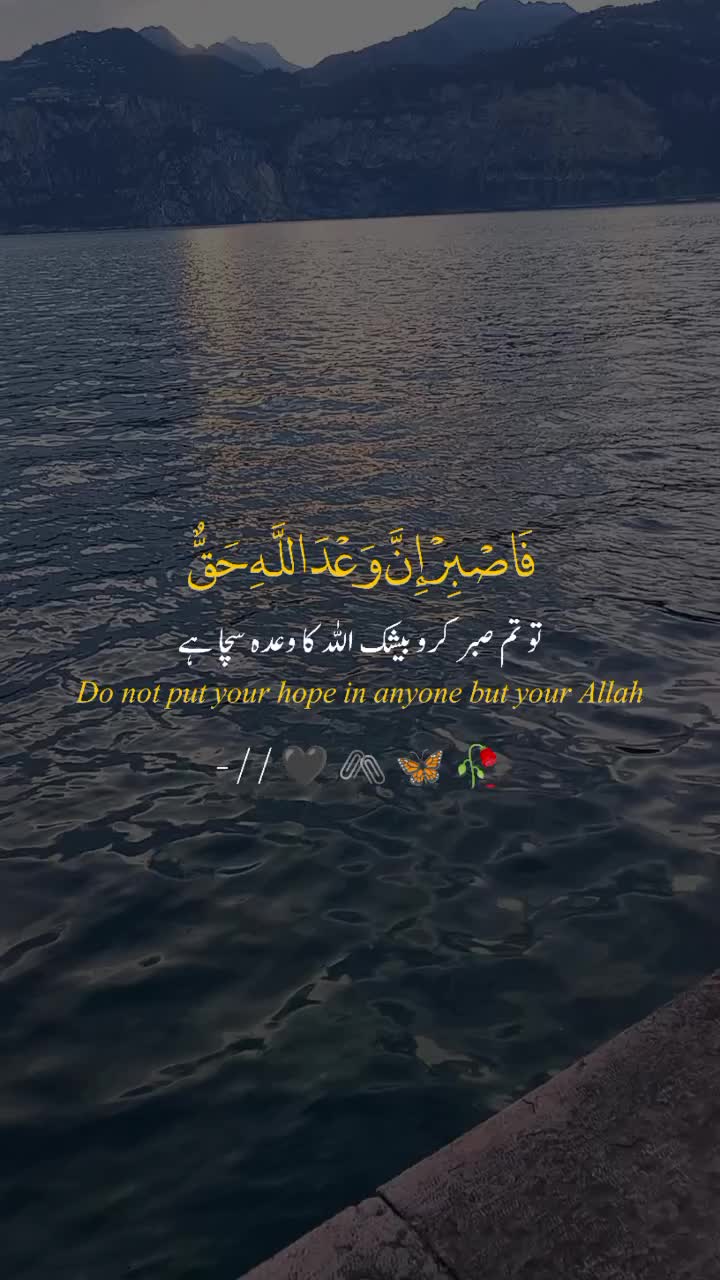 فَاصْبِرْ إِنَّ وَعْدَ اللَّهِ حَقٌّ
تو تم صبر کرو بیشک اللہ کا وعدہ سچا ہے
Do not put your hope in anyone but your Allah
-// 🖤 🖇️ 🦋 🥀